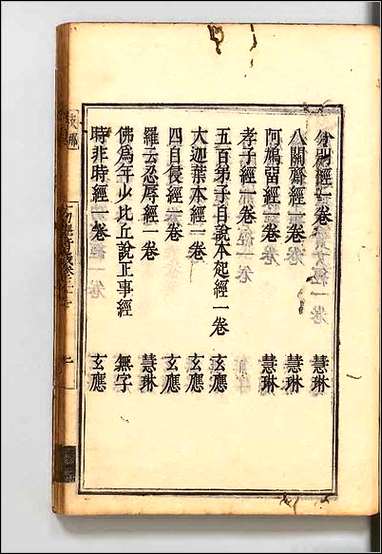 分別經一卷 慧琳
八關齋經一卷 慧琳
阿鳩留經一卷 慧琳
孝子經一卷
五百弟子自說本起經一卷 玄應
大迦葉本經一卷 玄應
四自侵經一卷 玄應
羅云忍辱經一卷 慧琳
佛爲年少比丘說正事經 無字
時非時經一卷 玄應